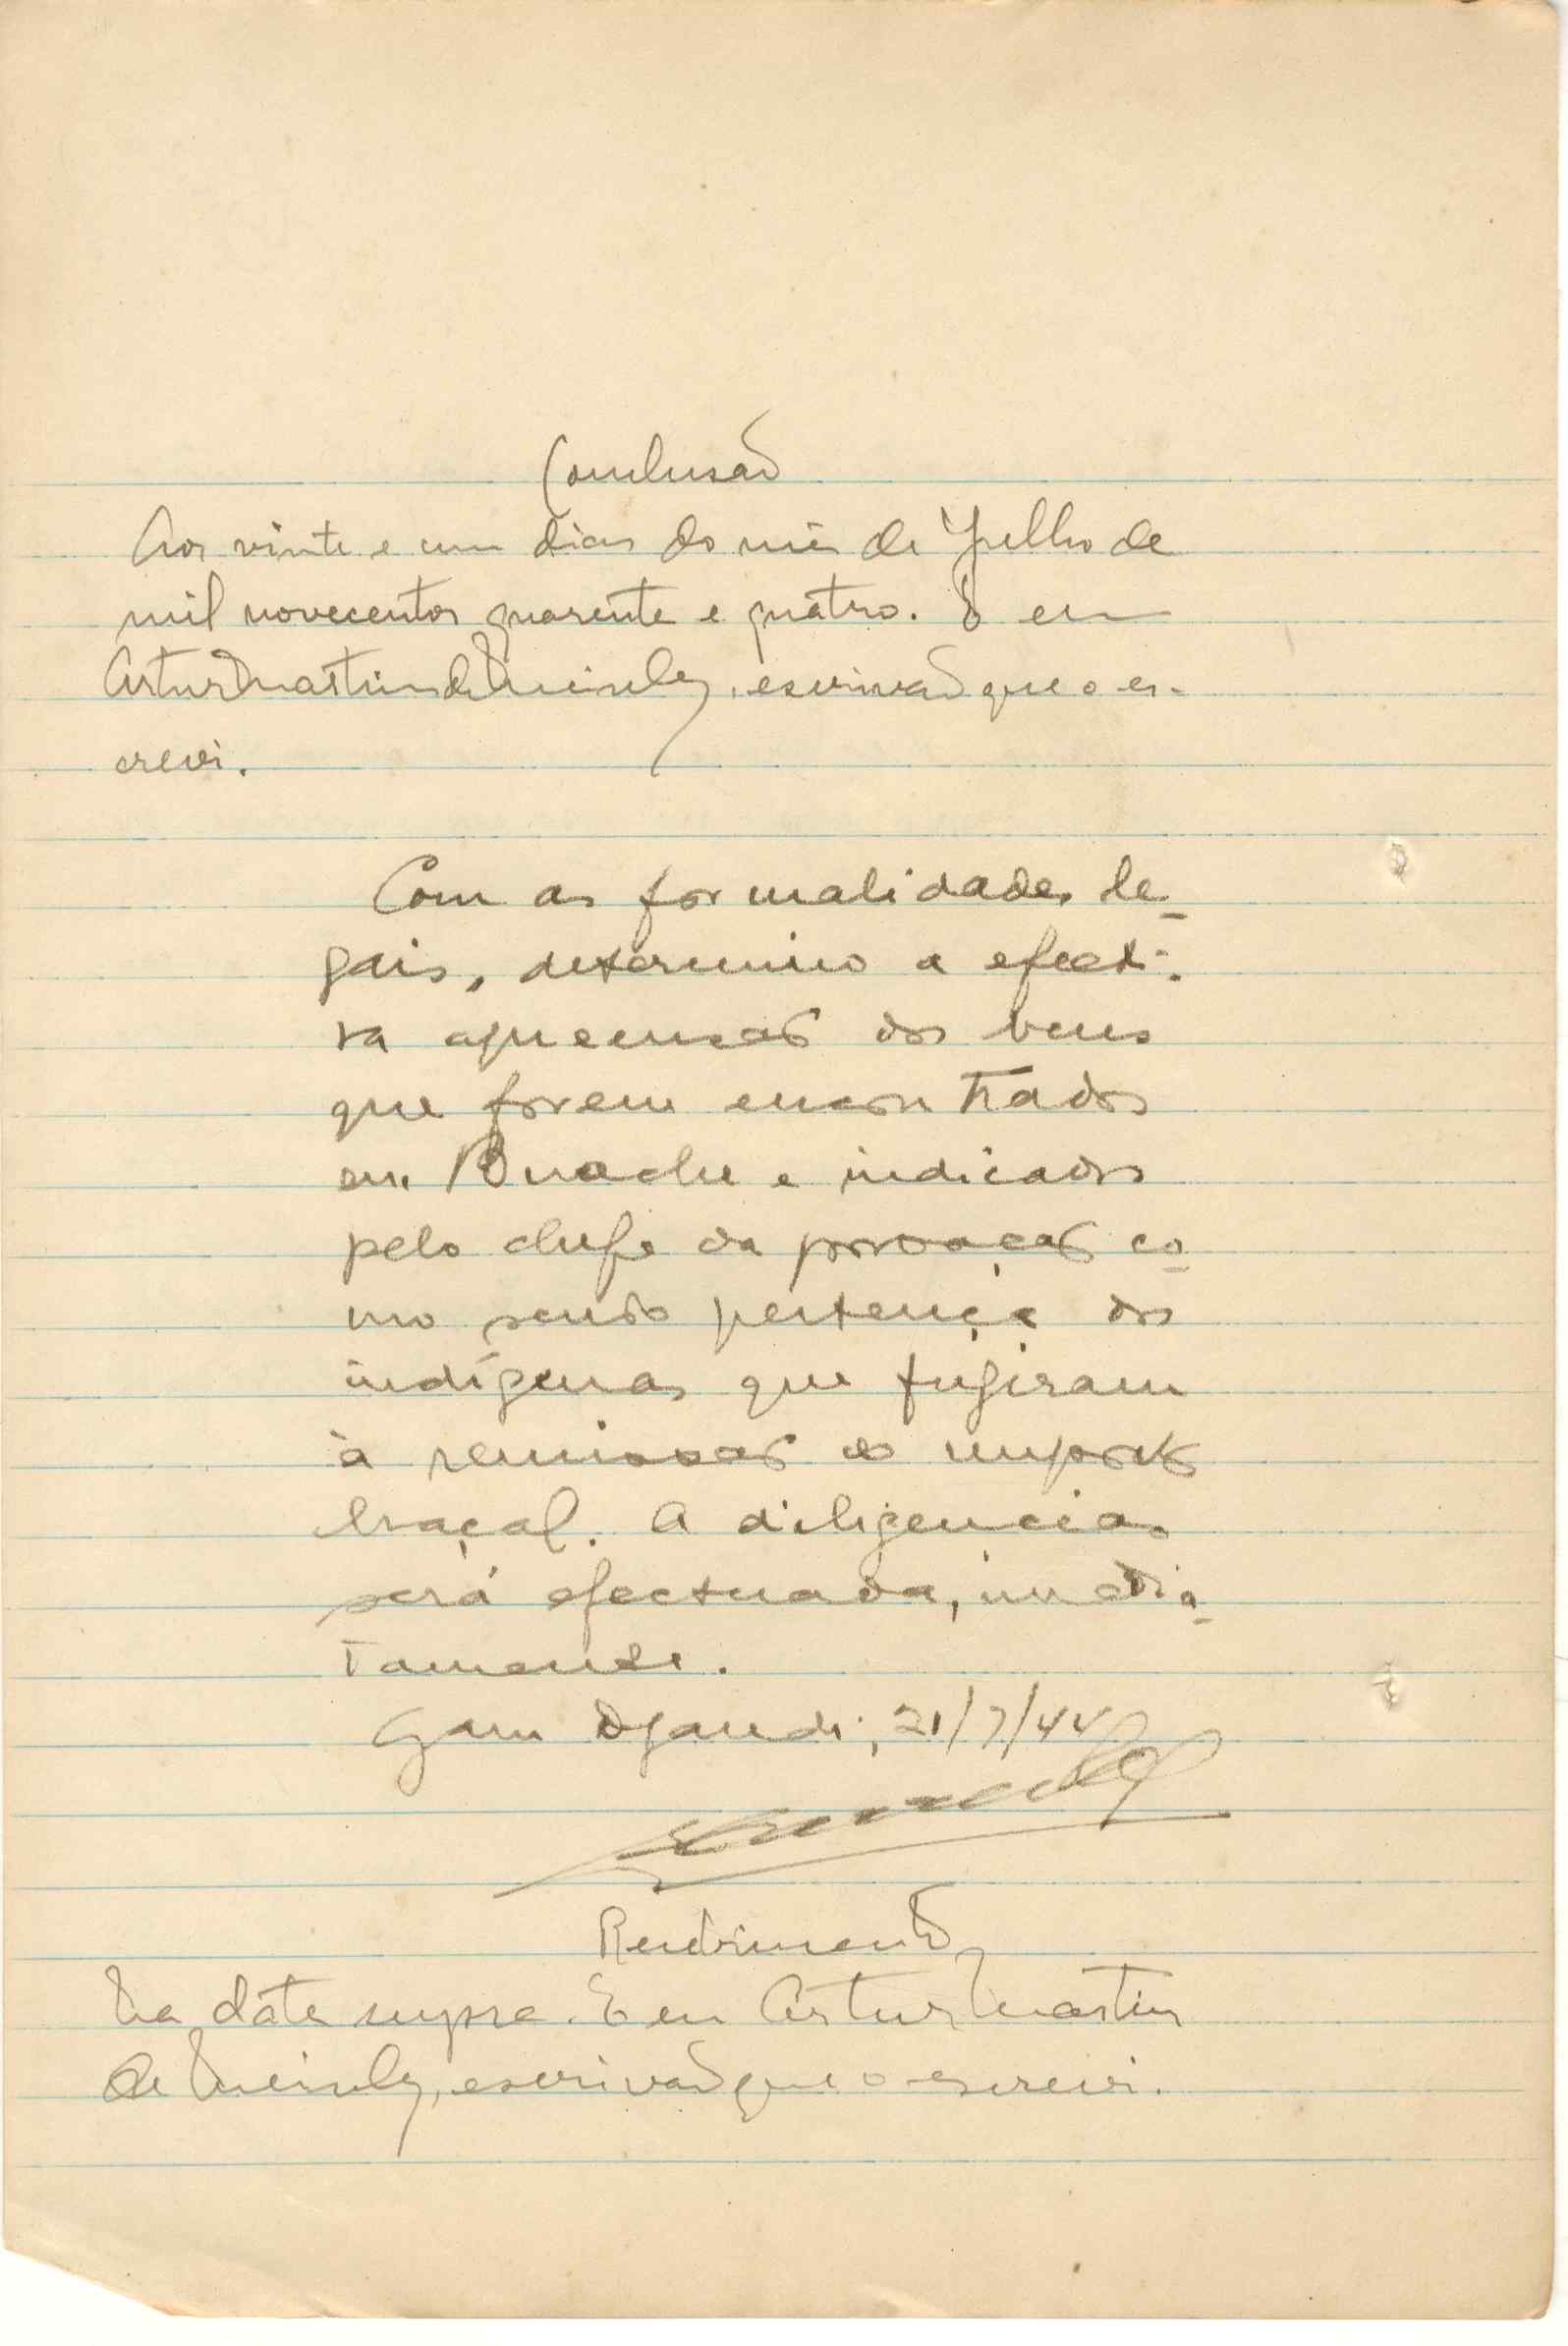 Conclusão
Aos vinte e um dias do mês de Julho de
mil novecentos quarenta e quatro. E eu
Artur Martins de Meireles, escrivão que o es-
crevi.
Com as formalidades le-
gais, determino a efecti-
va apreensão dos bens
que forem encontrados
em Buache e indicados
pelo chefe da povoação co-
mo sendo pertença dos
indígenas que fugiram
à remissão do imposto
braçal. A diligencia
será efectuada, imedia-
tamente.
Gam Djandi, 21/7/44
Rendimento
Na data supra. E eu Artur Martins
de Meireles, escrivão que o escrevi.